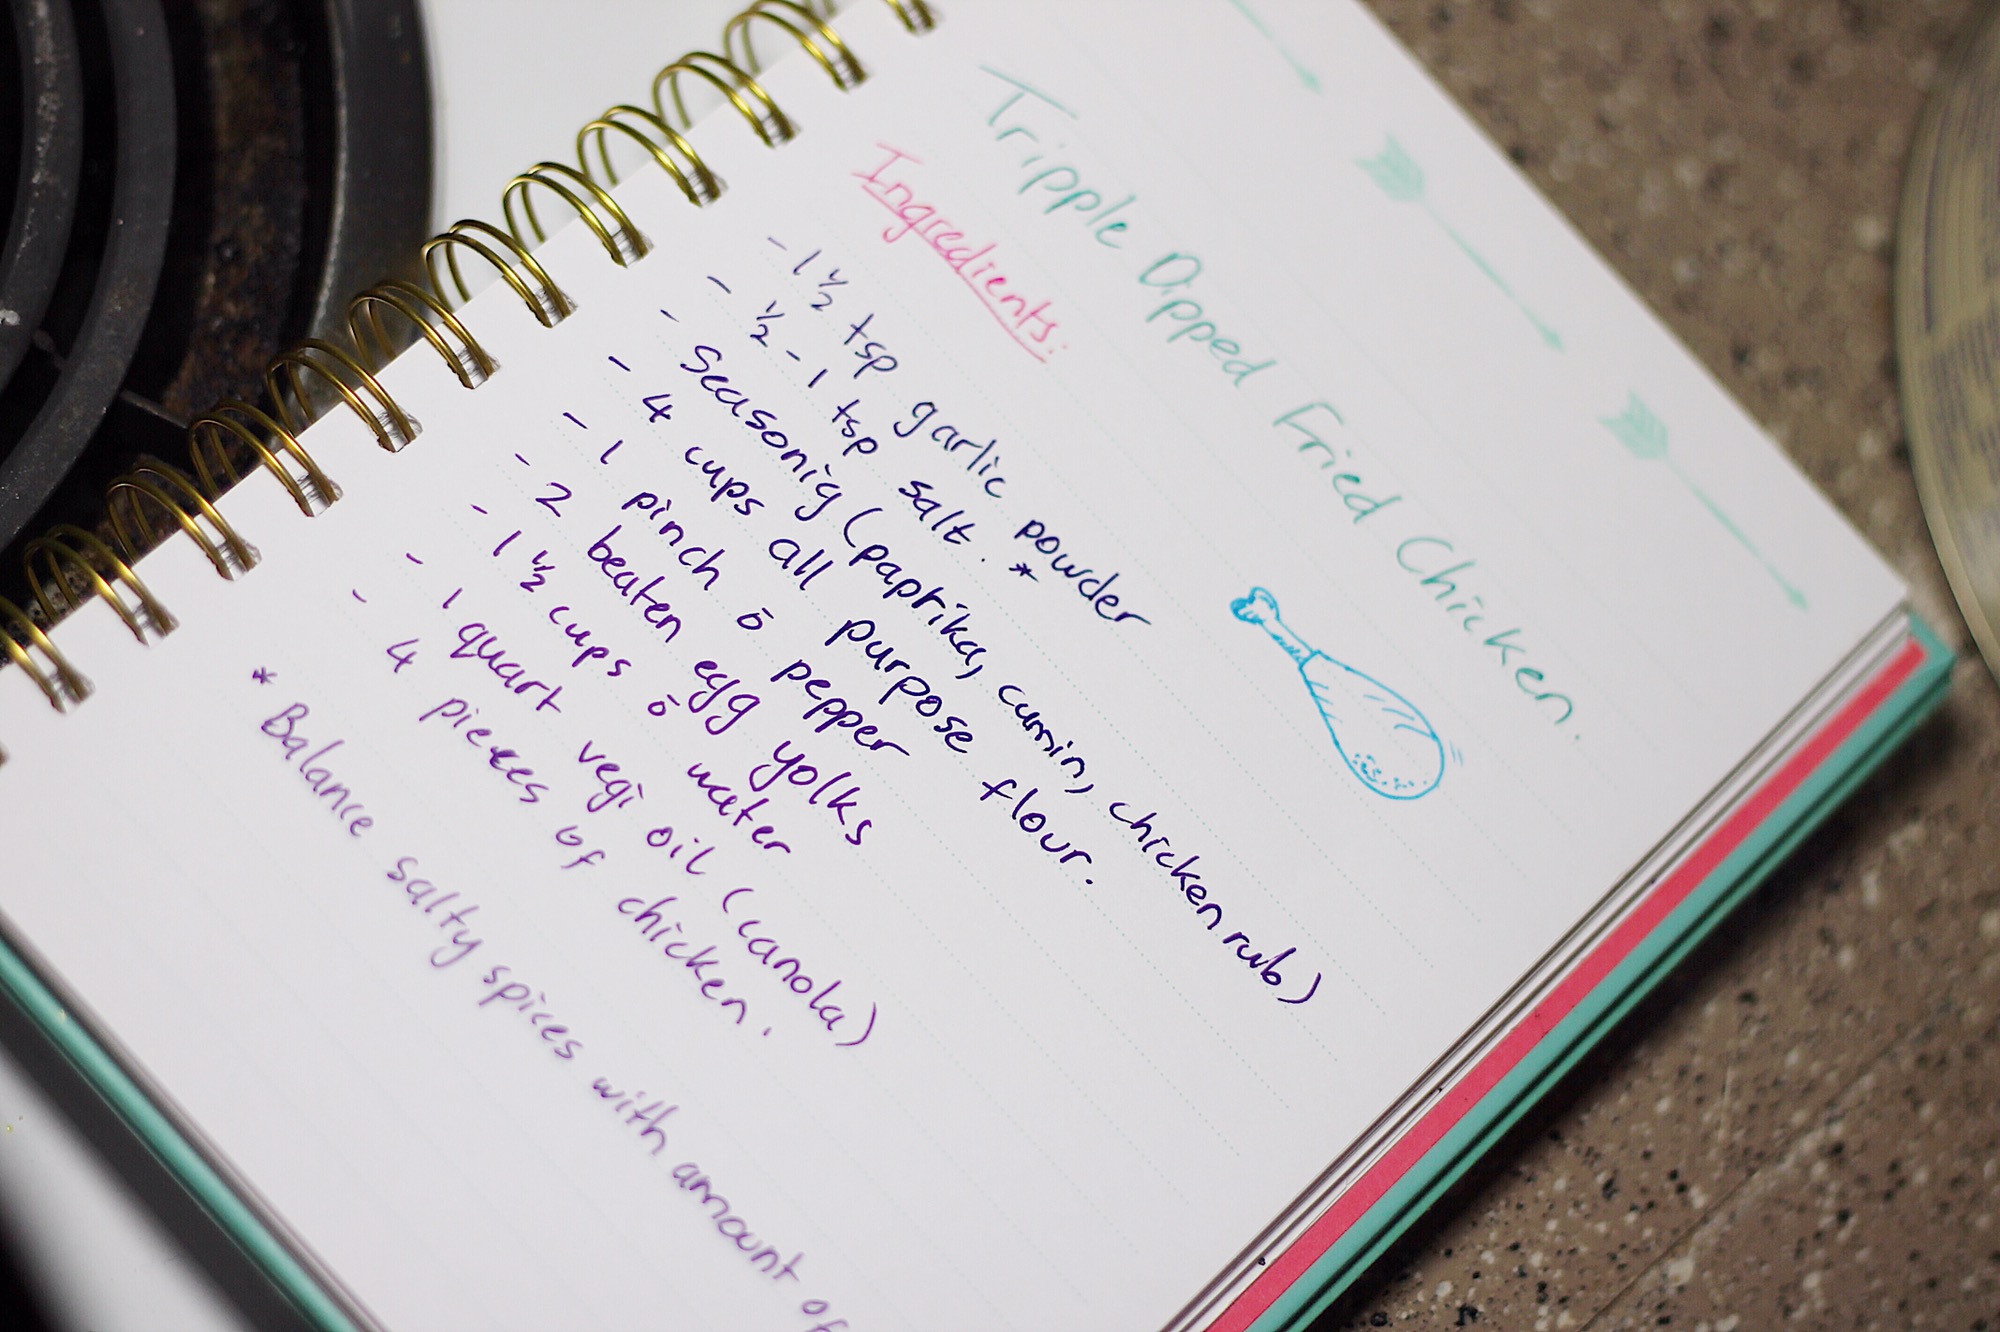 Tripple Dipped Fried Chicken.
Ingredients:
- 1 ½ tsp garlic powder
- ½ - 1 tsp salt. *
- Seasonig (paprika, cumin, chicken rub)
- 4 cups all purpose flour.
- 1 pinch ō pepper
- 2 beaten egg yolks
- 1 ½ cups ō water
- 1 quart vegi oil (canola)
- 4 pieces of chicken.
* Balance salty spices with amount of